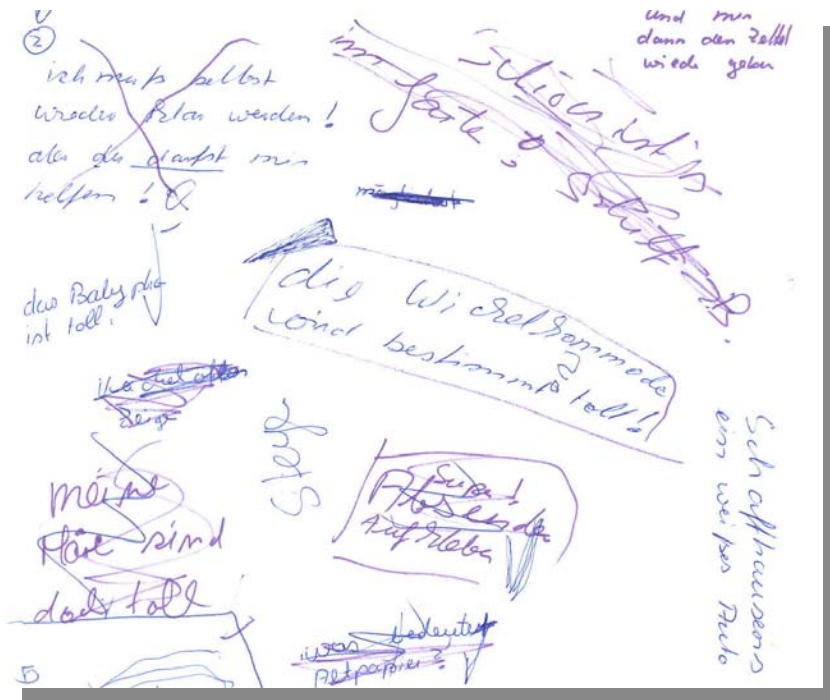 2
ich muß selbst
wieder klar werden!
aber du darfst mir
helfen!
und mir
dann den Zettel
wieder geben
Schön ist's
im
das Babyphon
ist toll.
die Wickelkommode
wird bestimmt toll!
meine
Haare sind
doch toll
Super!
Absender
Aufkleber
Schaffhausens
ein weißes Auto
was bedeutet
Altpapier?
5